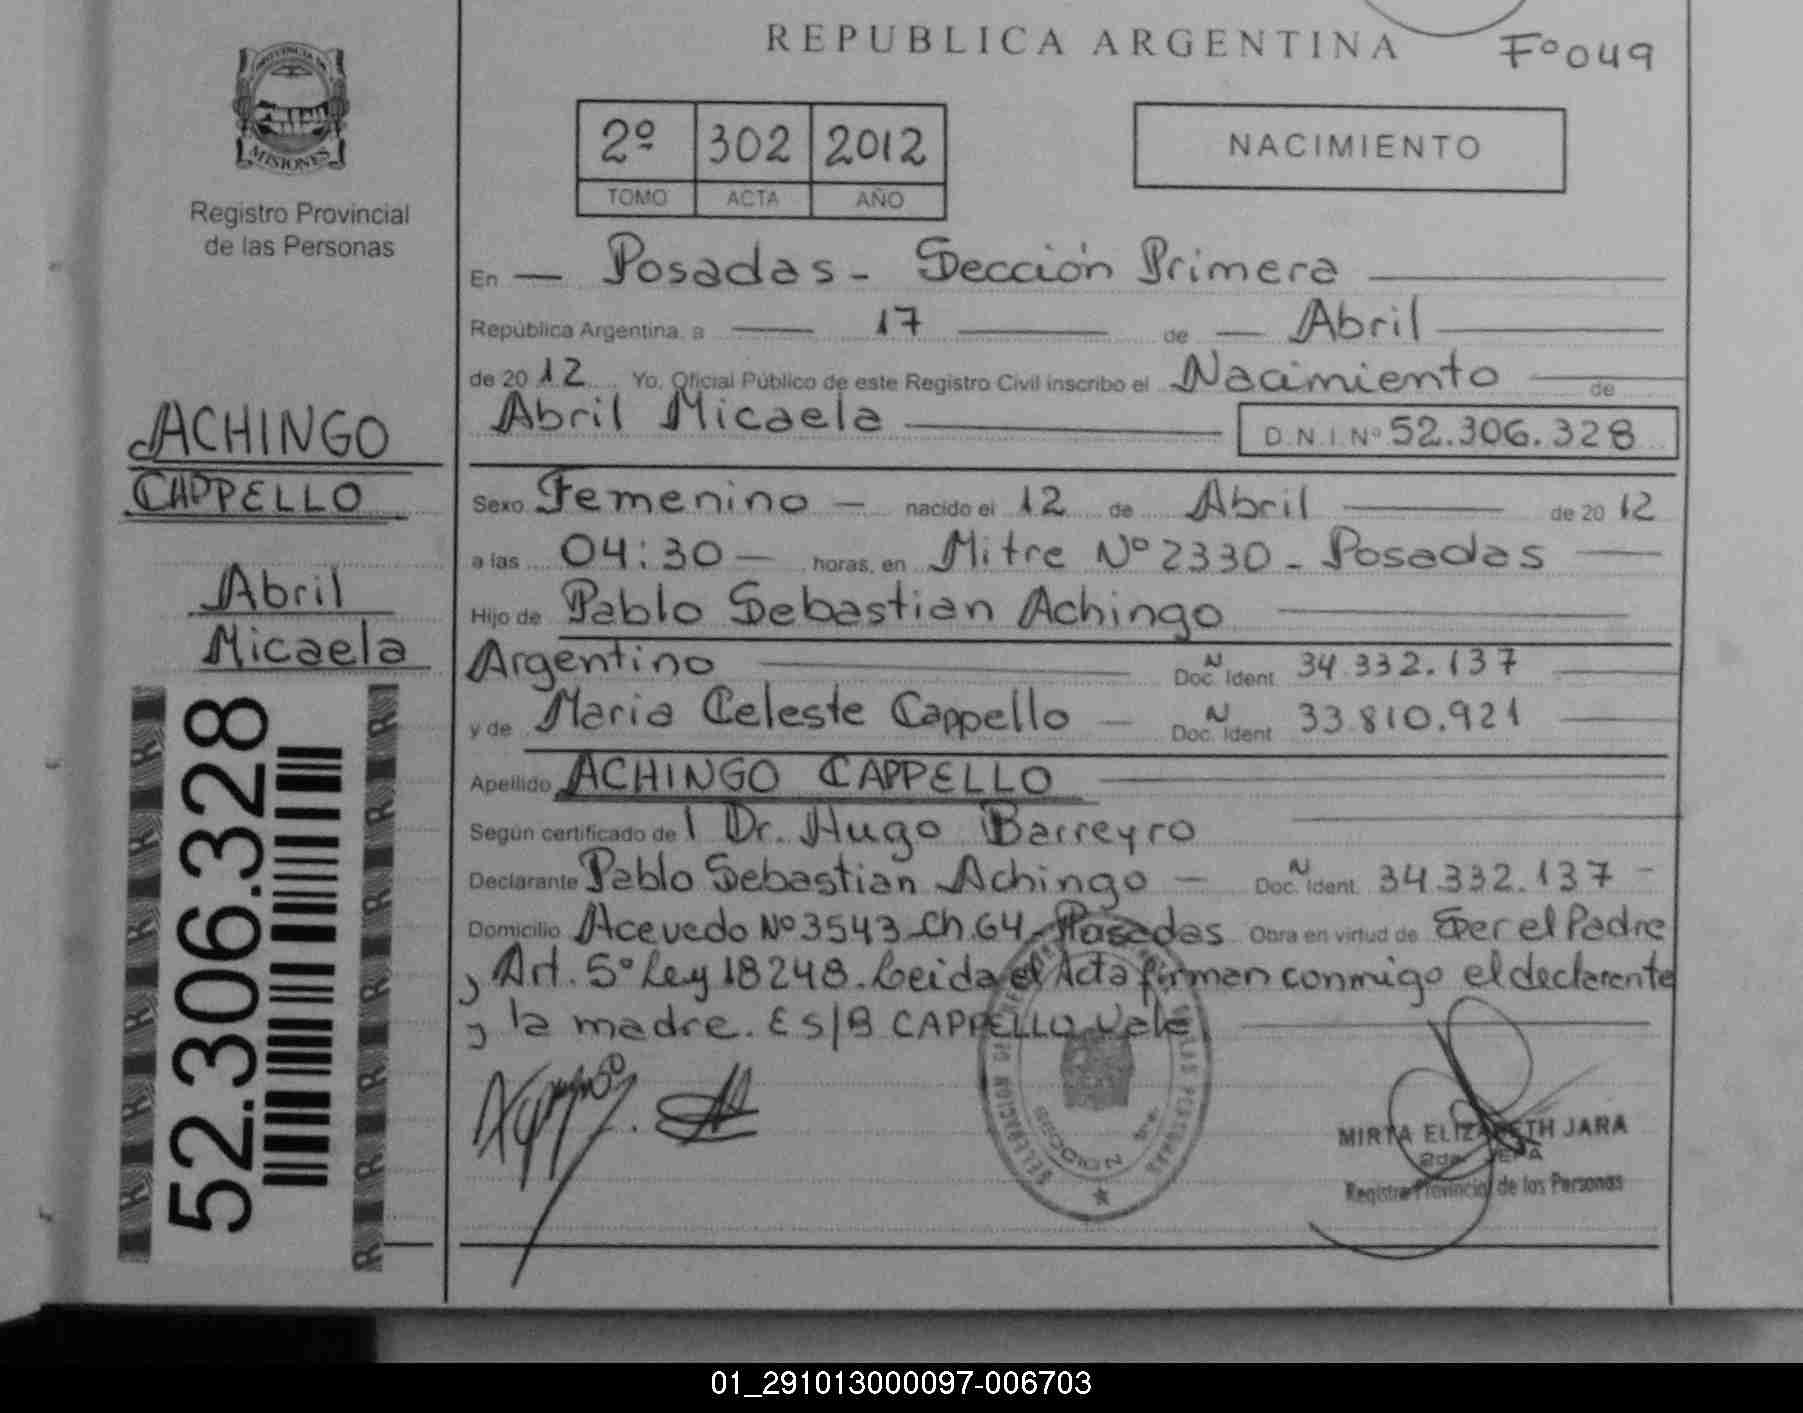 REPUBLICA ARGENTINA
Fº 049
PROVINCIA DE
MISIONES
Registro Provincial
de las Personas
2º 302 2012
TOMO ACTA AÑO
NACIMIENTO
En — Posadas - Sección Primera
República Argentina, a 17 de Abril
de 2012 Yo, Oficial Público de este Registro Civil inscribo el Nacimiento de
Abril Micaela D.N.I. Nº 52.306.328
ACHINGO
CAPPELLO
Abril
Micaela
52.306.328
Sexo Femenino — nacido el 12 de Abril de 2012
a las 04:30 — horas, en Mitre Nº 2330 - Posadas
Hijo de Pablo Sebastian Achingo
Argentino N Doc. Ident. 34.332.137
y de Maria Celeste Cappello — N Doc. Ident. 33.810.921
Apellido ACHINGO CAPPELLO
Según certificado de l Dr. Hugo Barreyro
Declarante Pablo Sebastian Achingo — N Doc. Ident. 34.332.137 -
Domicilio Acevedo Nº 3543 - Ch. 64 - Posadas Obra en virtud de Ser el Padre
y Art. 5º Ley 18248. Leida el Acta firman conmigo el declarante
y la madre. E S/B CAPPELLO Vale
SECCION 1ra.
MIRTA ELIZABETH JARA
2da. JEFA
Registro Provincial de las Personas
01_291013000097-006703